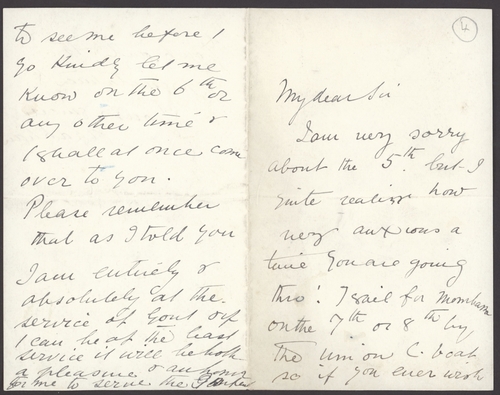 4
My dear Sir
I am very sorry
about the 5th. but I
quite realize how
very anxious a
time you are going
thro'. I sail for Mombasa
on the 7th or 8th by
the Union C. boat
so if you ever wish
to see me before I
go Kindly let me
Know on the 6th or
any other time &
I shall at once come
over to you.
Please remember
that as I told you
I am entirely &
absolutely at the
service of Govt & if
I can be of the least
service it will be both
a pleasure & an honor
for me to serve the